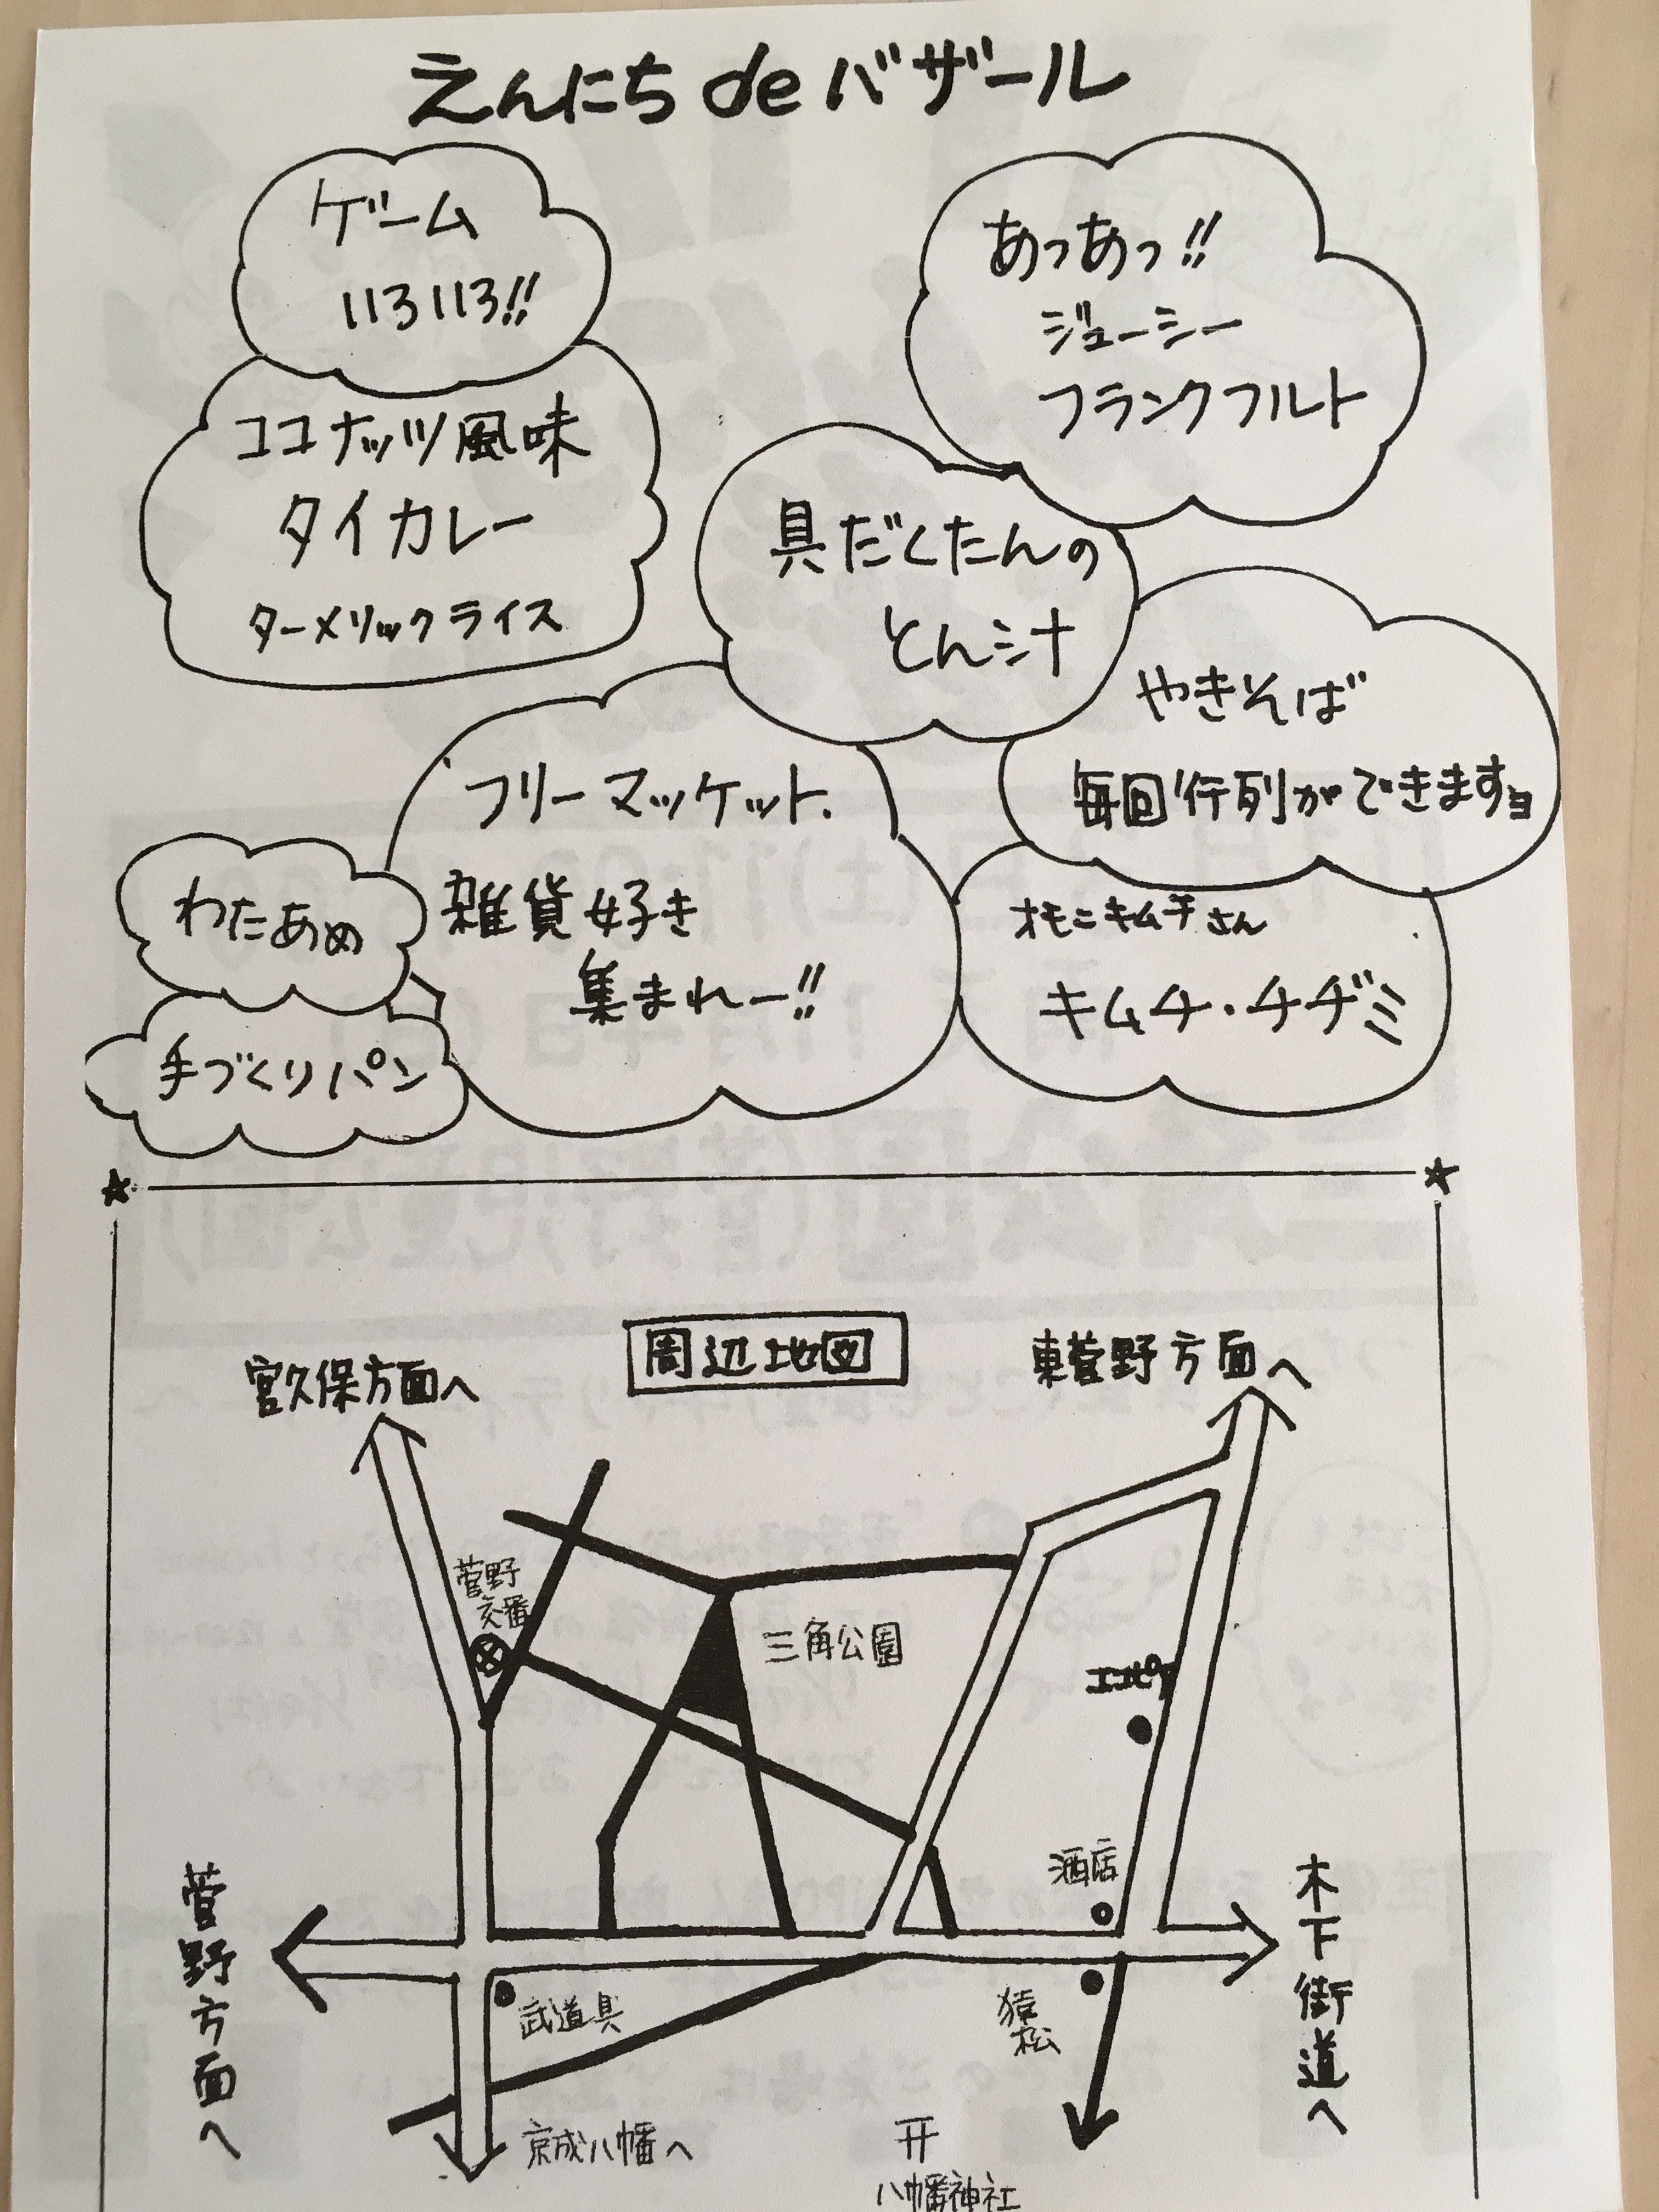 えんにち de バザール
ゲーム
いろいろ!!
あっあっ!!
ジューシー
フランクフルト
ココナッツ風味
タイカレー
ターメリックライス
具だくたんの
とん汁
やきそば
毎回行列ができますョ
フリーマッケット.
雑貨好き
集まれー!!
わたあめ
手づくりパン
オモニキムチさん
キムチ・チヂミ
周辺地図
宮久保方面へ
東菅野方面へ
菅野
交番
三角公園
エコピア
酒店
菅野方面へ
木下街道へ
武道具
猿松
京成八幡へ
八幡神社